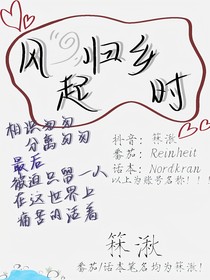 风起归乡时
相识匆匆
分离匆匆
最后
被迫只留一人
在这世界上
痛苦的活着
抖音：箖湫
番茄：Reinheit
话本：Nordkran
以上为账号名称！！！
箖湫
番茄/话本笔名均为箖湫！